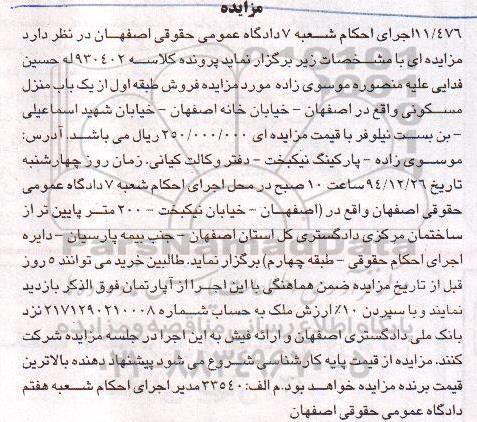 مزایده
۱۱/۴۷۶اجرای احکام شعبه ۷دادگاه عمومی حقوقی اصفهان در نظر دارد
مزایده ای با مشخصات زیر برگزار نماید پرونده کلاسه ۹۳۰۴۰۲له حسین
فدایی علیه منصوره موسوی زاده مورد مزایده فروش طبقه اول از یک باب منزل
مسکونی واقع در اصفهان - خیابان خانه اصفهان - خیابان شهید اسماعیلی
- بن بست نیلوفر با قیمت مزایده ای ۲۵۰/۰۰۰/۰۰۰ ریال می باشد. آدرس:
موسوی زاده - پارکینگ نیکبخت - دفتر وکالت کیانی. زمان روز چهارشنبه
تاریخ ۹۴/۱۲/۲۶ ساعت ۱۰ صبح در محل اجرای احکام شعبه ۷دادگاه عمومی
حقوقی اصفهان واقع در (اصفهان - خیابان نیکبخت - ۲۰۰ متر پایین تر از
ساختمان مرکزی دادگستری کل استان اصفهان - جنب بیمه پارسیان - دایره
اجرای احکام حقوقی - طبقه چهارم) برگزار نماید. طالبین خرید می توانند ۵ روز
قبل از تاریخ مزایده ضمن هماهنگی با این اجرا از آپارتمان فوق الذکر بازدید
نمایند و با سپردن ۱۰٪ ارزش ملک به حساب شماره ۲۱۷۱۲۹۰۲۱۰۰۰۸ نزد
بانک ملی دادگستری اصفهان و ارائه فیش به این اجرا در جلسه مزایده شرکت
کنند. مزایده از قیمت پایه کارشناسی شروع می شود پیشنهاد دهنده بالاترین
قیمت برنده مزایده خواهد بود.م الف: ۳۳۵۴۰ مدیر اجرای احکام شعبه هفتم
دادگاه عمومی حقوقی اصفهان